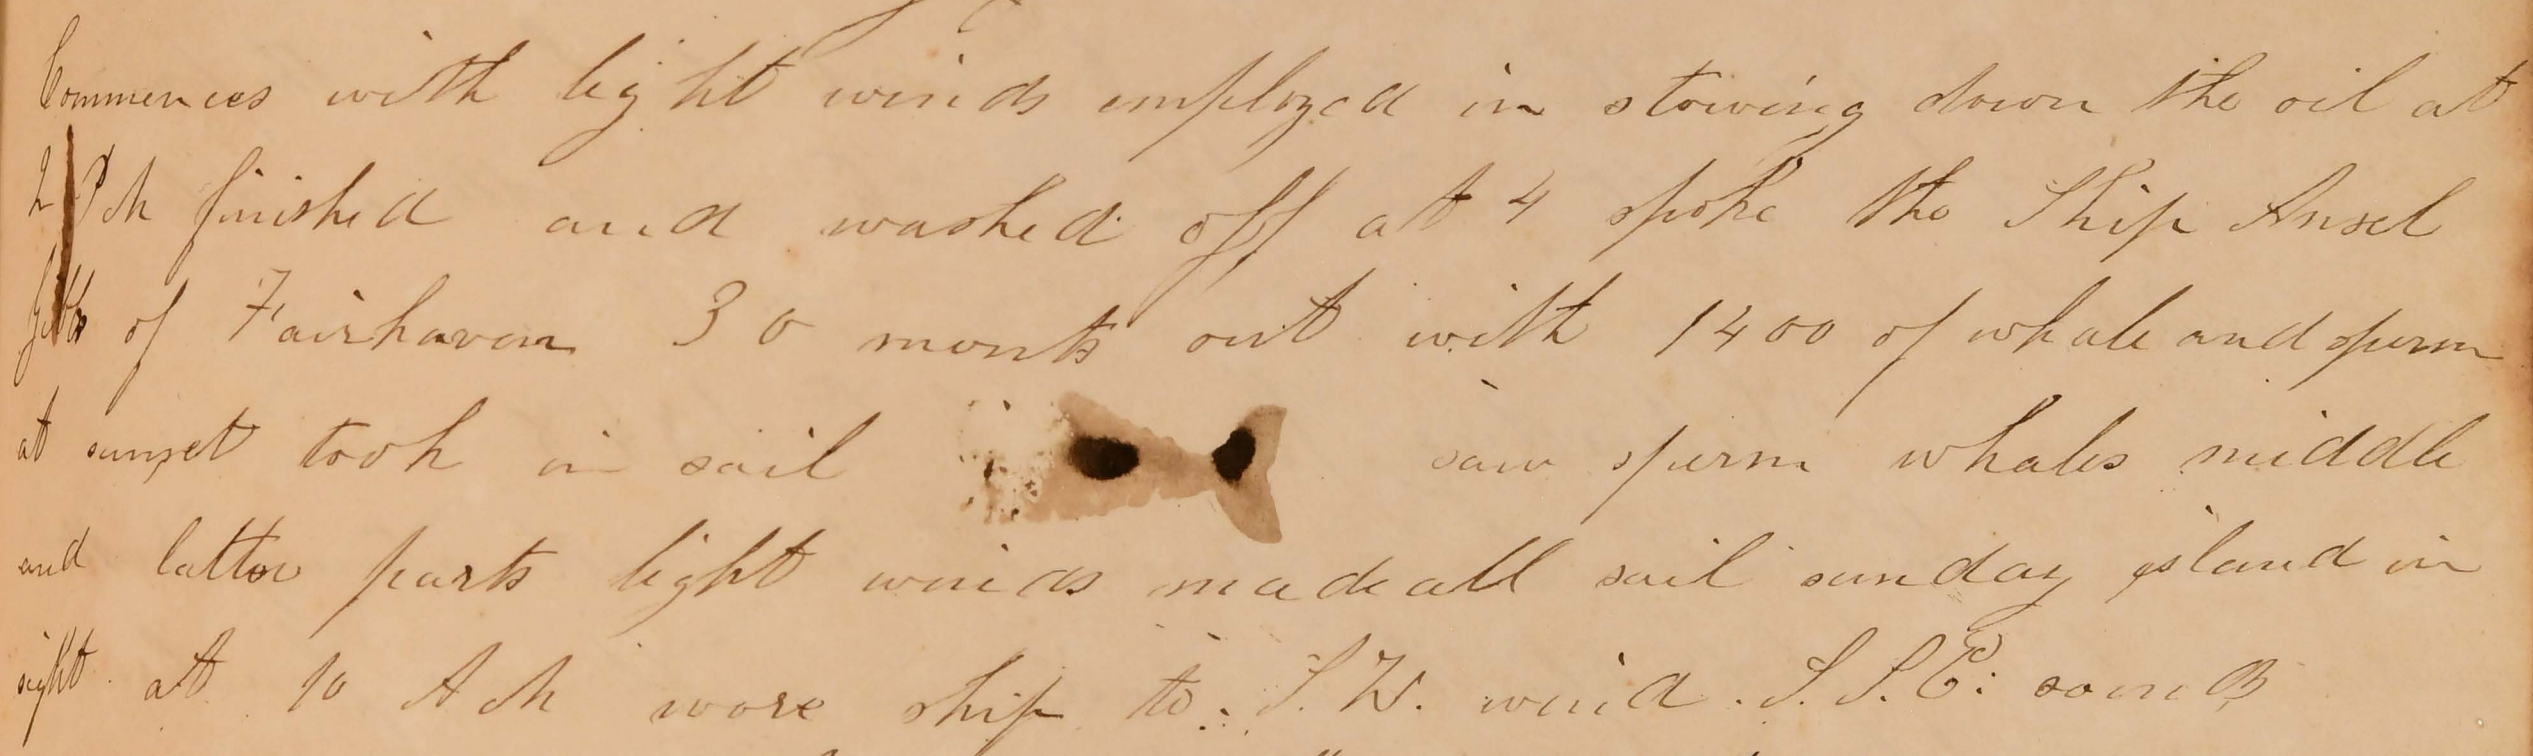 Commences with light winds employed in stowing down the oil at
2 PM finished and washed off at 4 spoke the Ship Ansel
Gibbs of Fairhaven 30 monts out with 1400 of whale and sperm
at sunset took in sail saw sperm whales middle
and latter parts light winds made all sail sunday island in
sight at 10 AM wore ship to S.W. wind S.S.E: